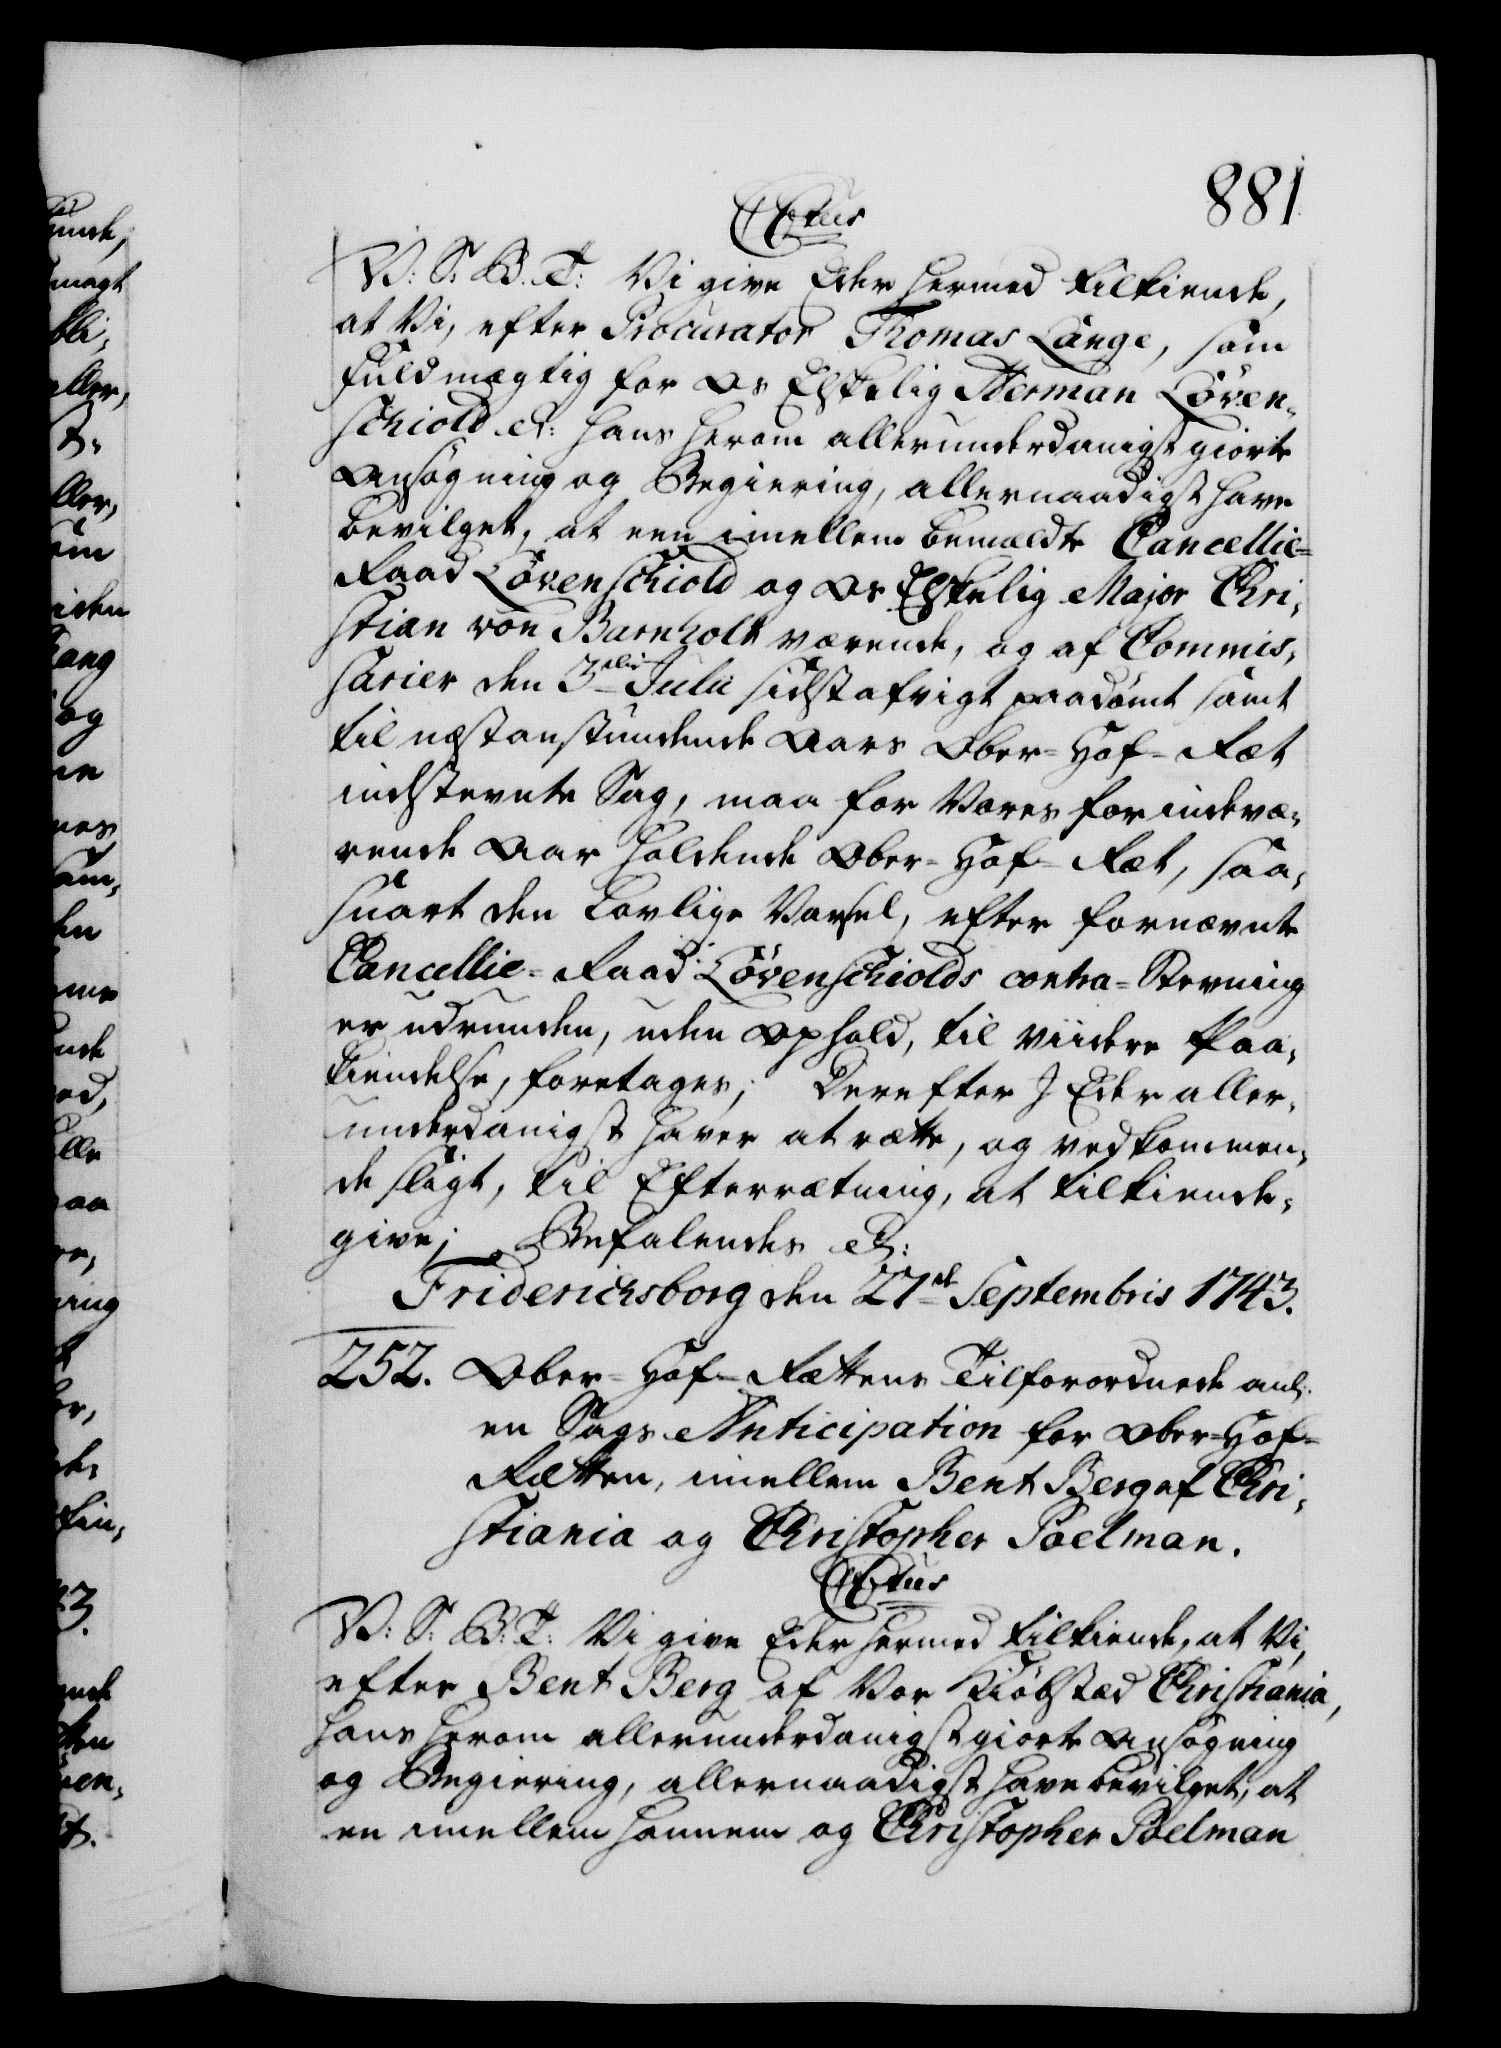 881
C. 6tus
V: S: G: T: Vi give Eder hermed tilkiende,
at Vi, efter Procurator Thomas Lange, som
Fuldmægtig for Os Elskelig Herman Löven-
schiold &: hans herom allerunderdanigst giorte
Ansögning og Begiering, allernaadigst have
bevilget, at een imellem bemældte Cancellie-
Raad Lövenschiold og Os Elskelig Major Chri-
stian von Barnholt værende, og af Commis-
sarier den 3die Julii sidst afvigt paadömt samt
til næstanstundende Aars Ober-Hof-Ræt
indstevnte Sag, maa for Vores for indevæ-
rende Aar holdende Ober-Hof-Ræt, saa-
snart den Lovlige Varsel, efter fornævnte
Cancellie-Raad Lövenschiolds contra-Stevning
er udrunden, uden Ophold, til viidere Paa-
kiendelse, foretages; Derefter I Eder aller-
underdanigst haver at rætte, og vedkommen-
de sligt, til Efterrætning, at tilkiende-
give; Befalendes &:
Friderichsborg den 27de Septembris 1743.
252. Ober-Hof-Rættens Tilforordnede anl:
en Sags Anticipation for Ober-Hof-
Rætten, imellem Bent Berg af Chri-
stiania og Christopher Poelman.
V: S: G: T: Vi give Eder hermed tilkiende, at Vi,
efter Bent Berg af Vor Kiöbstæd Christiania,
hans herom allerunderdanigst giorte Ansögning
og Begiering, allernaadigst have bevilget, at
en imellem hannem og Christopher Poelman